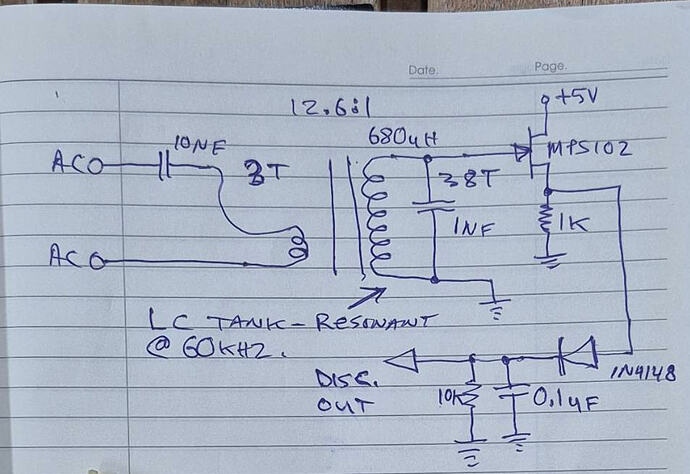 Date. Page.
12.6:1
+5V
10NF
680uH
MPS102
ACO
3T
38T
1NF
1K
ACO
LC TANK - RESONANT
@ 60KHZ.
DISC.
OUT
10K
0.1uF
1N4148